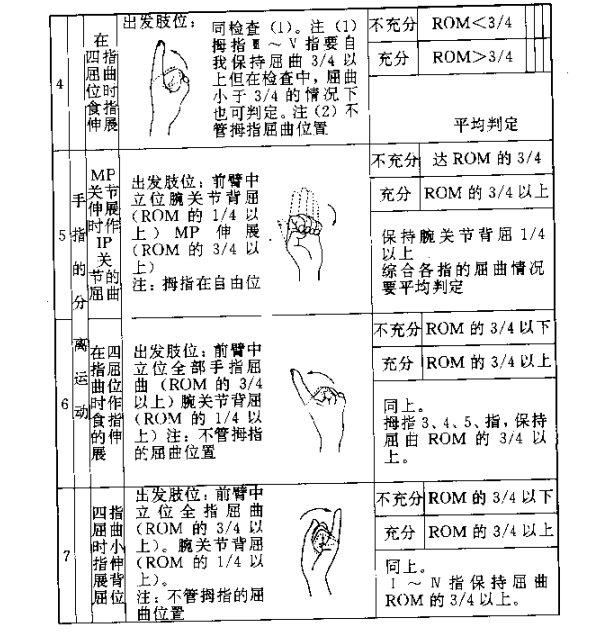 4
在
四指
屈曲
位时
食指
伸展
出发肢位：
同检查（1）。注（1）
拇指Ⅲ～Ⅴ指要自
我保持屈曲 3/4 以
上但在检查中，屈曲
小于 3/4 的情况下
也可判定。注（2）不
管拇指屈曲位置
不充分 ROM＜3/4
充分 ROM＞3/4
平均判定
手指的分离运动
5
MP
关节
伸展
时作
IP
关
节的
屈曲
出发肢位：前臂中
立位腕关节背屈
（ROM 的 1/4 以
上）MP 伸展
（ROM 的 3/4 以
上）
注：拇指在自由位
不充分 达 ROM 的 3/4
充分 ROM 的 3/4 以上
保持腕关节背屈 1/4
以上
综合各指的屈曲情况
要平均判定
6
在四
指屈
曲位
时作
食指
的伸
展
出发肢位：前臂中
立位全部手指屈
曲（ROM 的 3/4
以上）腕关节背屈
（ROM 的 1/4 以
上）注：不管拇指
的屈曲位置
不充分 ROM 的 3/4 以下
充分 ROM 的 3/4 以上
同上。
拇指 3、4、5、指，保持
屈曲 ROM 的 3/4 以
上。
7
四指
屈曲
时小
指伸
展背
屈位
出发肢位：前臂中
立位全指屈曲
（ROM 的 3/4 以
上）。腕关节背屈
（ROM 的 1/4 以
上）。
注：不管拇指的屈
曲位置
不充分 ROM 的 3/4 以下
充分 ROM 的 3/4 以上
同上。
Ⅰ～Ⅳ指保持屈曲
ROM 的 3/4 以上。